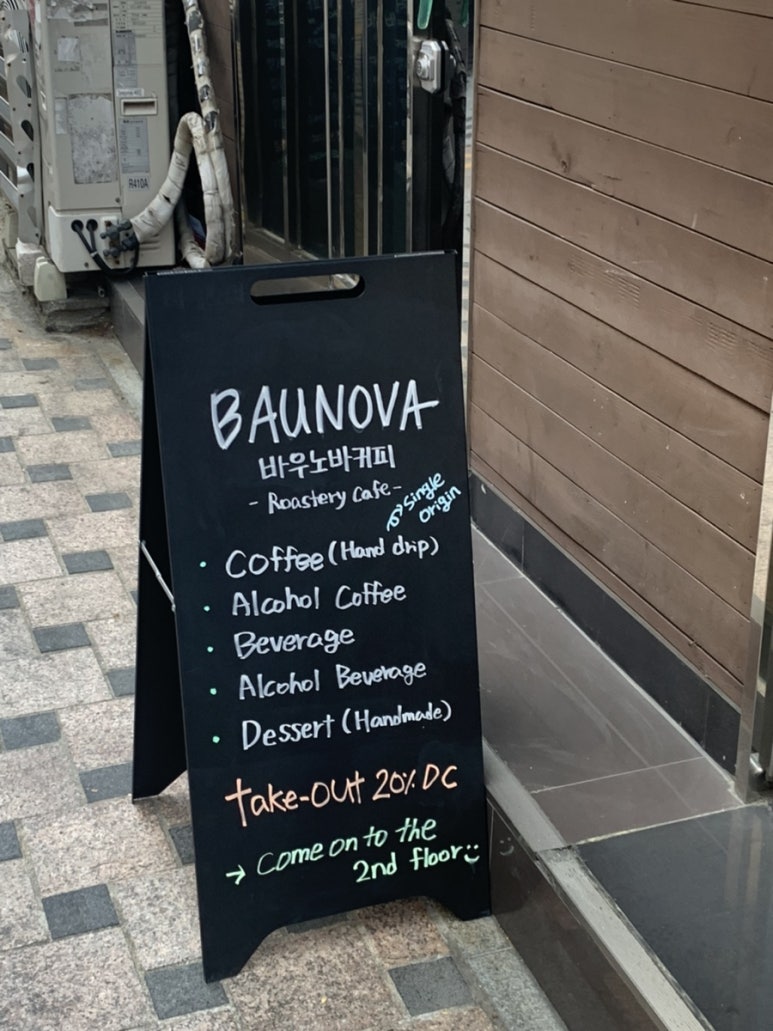 BAUNOVA
바우노바커피
- Roastery Cafe -
single
origin
• Coffee (Hand drip)
• Alcohol Coffee
• Beverage
• Alcohol Beverage
• Dessert (Handmade)
take-out 20% DC
→ Come on to the
2nd floor :)
R410A